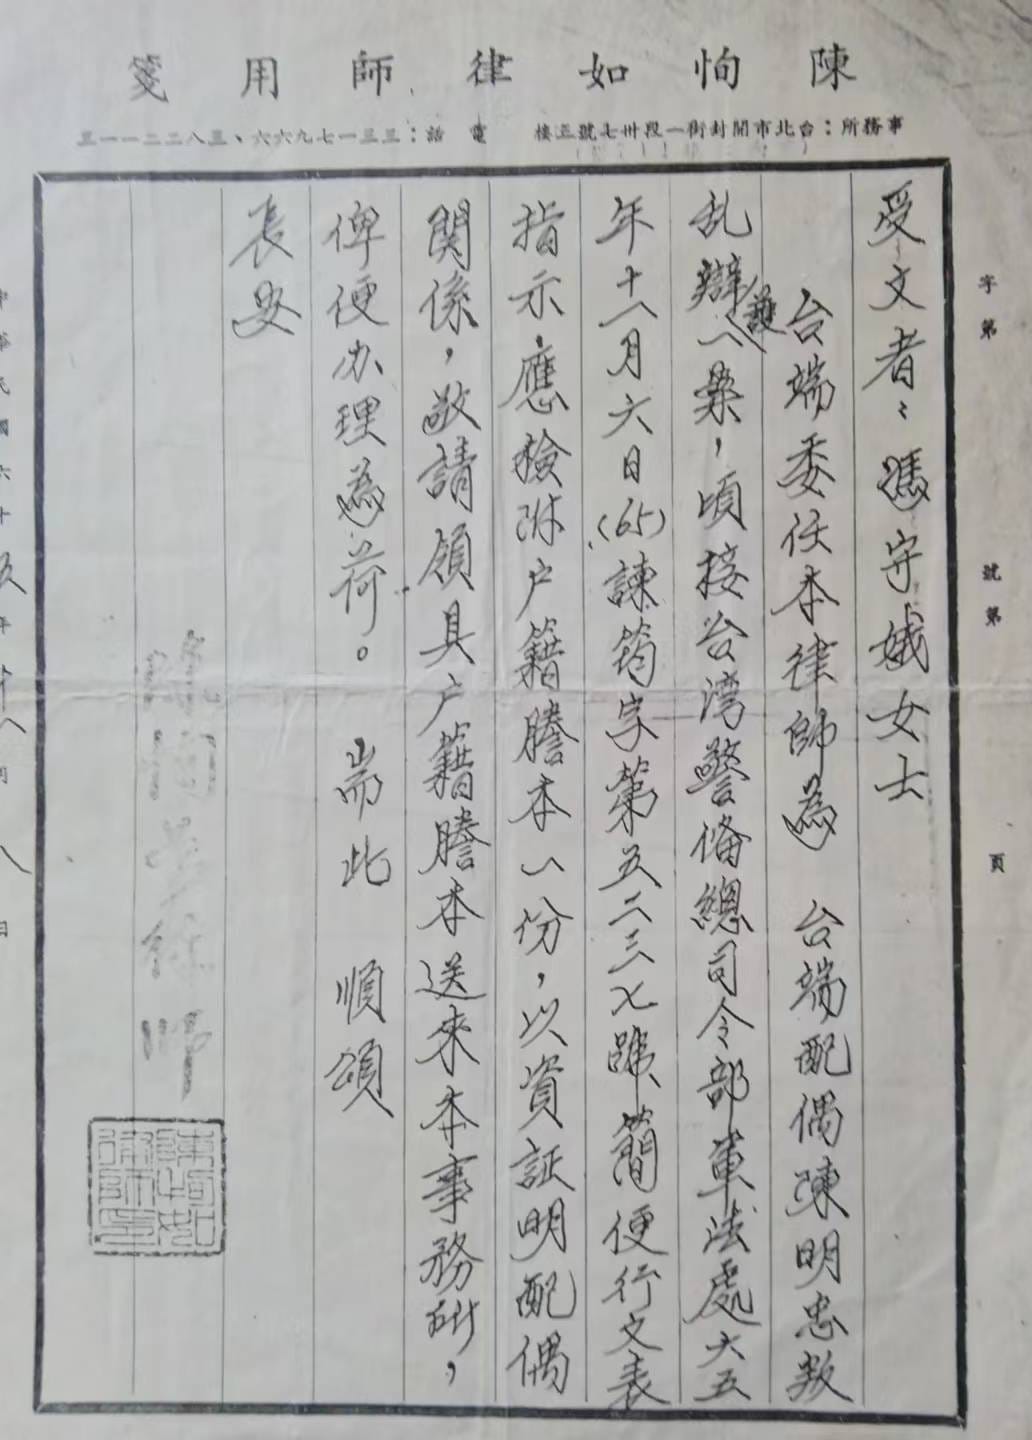 陳恂如律師用箋
事務所：台北市開封街一段卅七號三樓 電話：三三一七九六六、三八二二一一三
字第 號第 頁
受文者：馮守娥女士
台端委任本律師為 台端配偶陳明忠叛
乱辯護一案，頃接台湾警備總司令部軍法處六五
年十一月六日(65)諫筠字第五二三七號簡便行文表
指示，應檢附户籍謄本一份，以資証明配偶
関係，敬請領具户籍謄本送來本事務所，
俾便办理為荷。 耑此 順頌
長安
陳恂如律師
陳恂如律師印
中華民國六十五年十一月八日